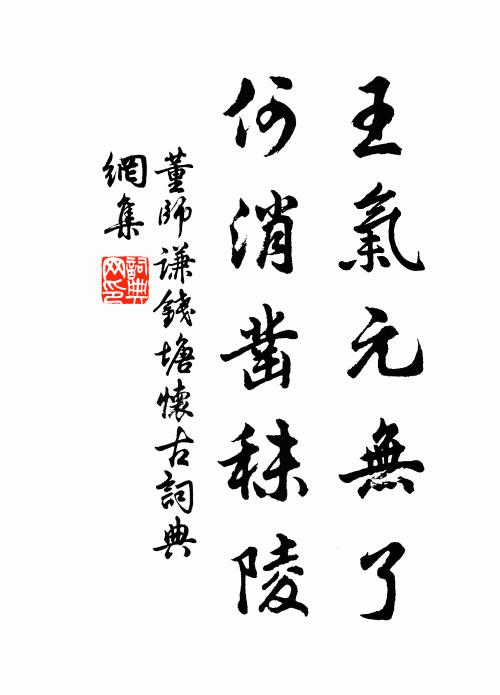 王氣元無了
何消鑿秣陵
董師謙錢塘懷古詞典
網集
詞典
網印